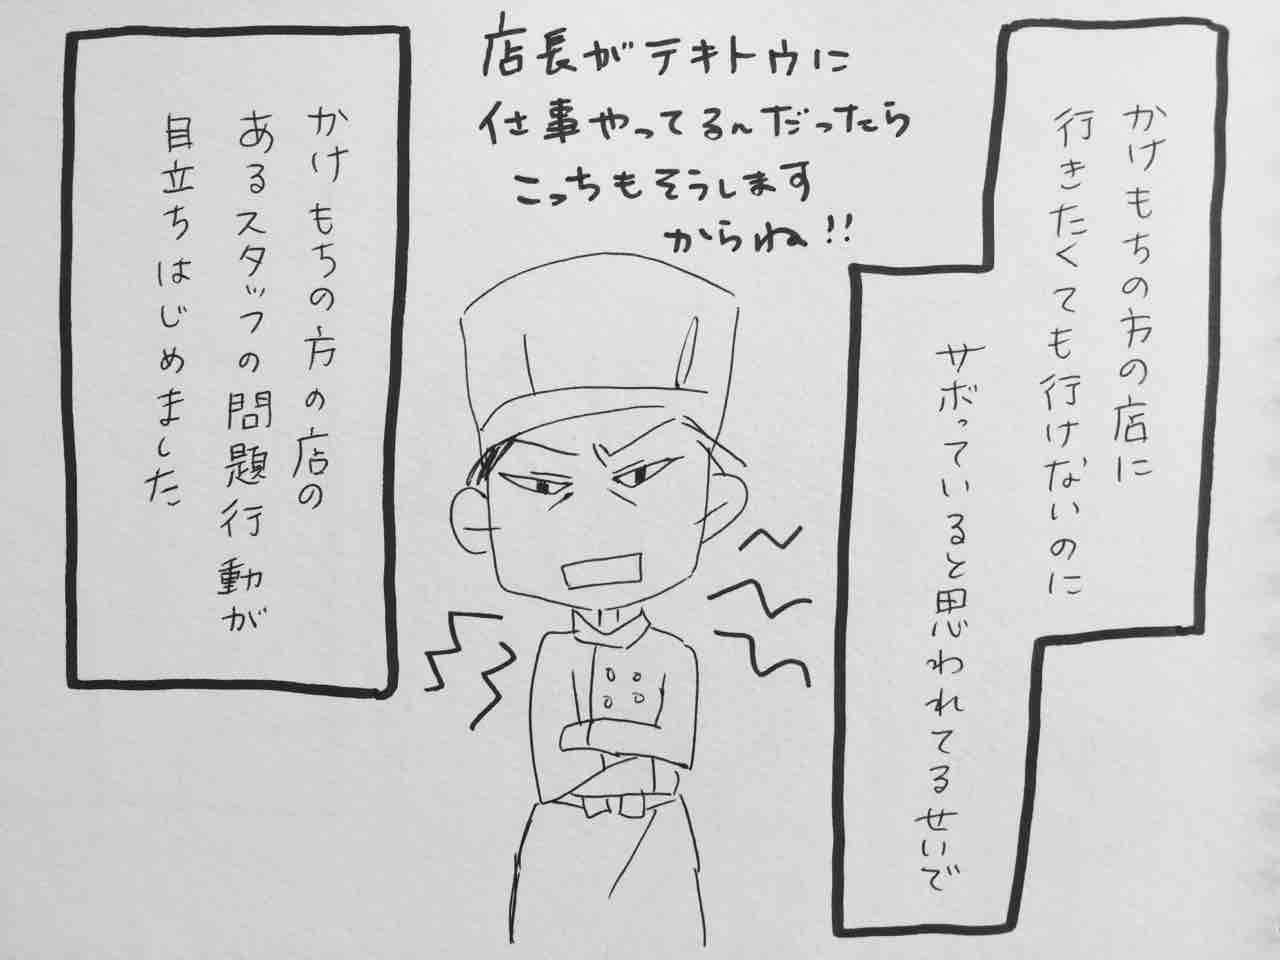 かけもちの方の店に
行きたくても行けないのに
サボっていると思われてるせいで
店長がテキトウに
仕事やってるんだったら
こっちもそうします
からね!!
かけもちの方の店の
あるスタッフの問題行動が
目立ちはじめました